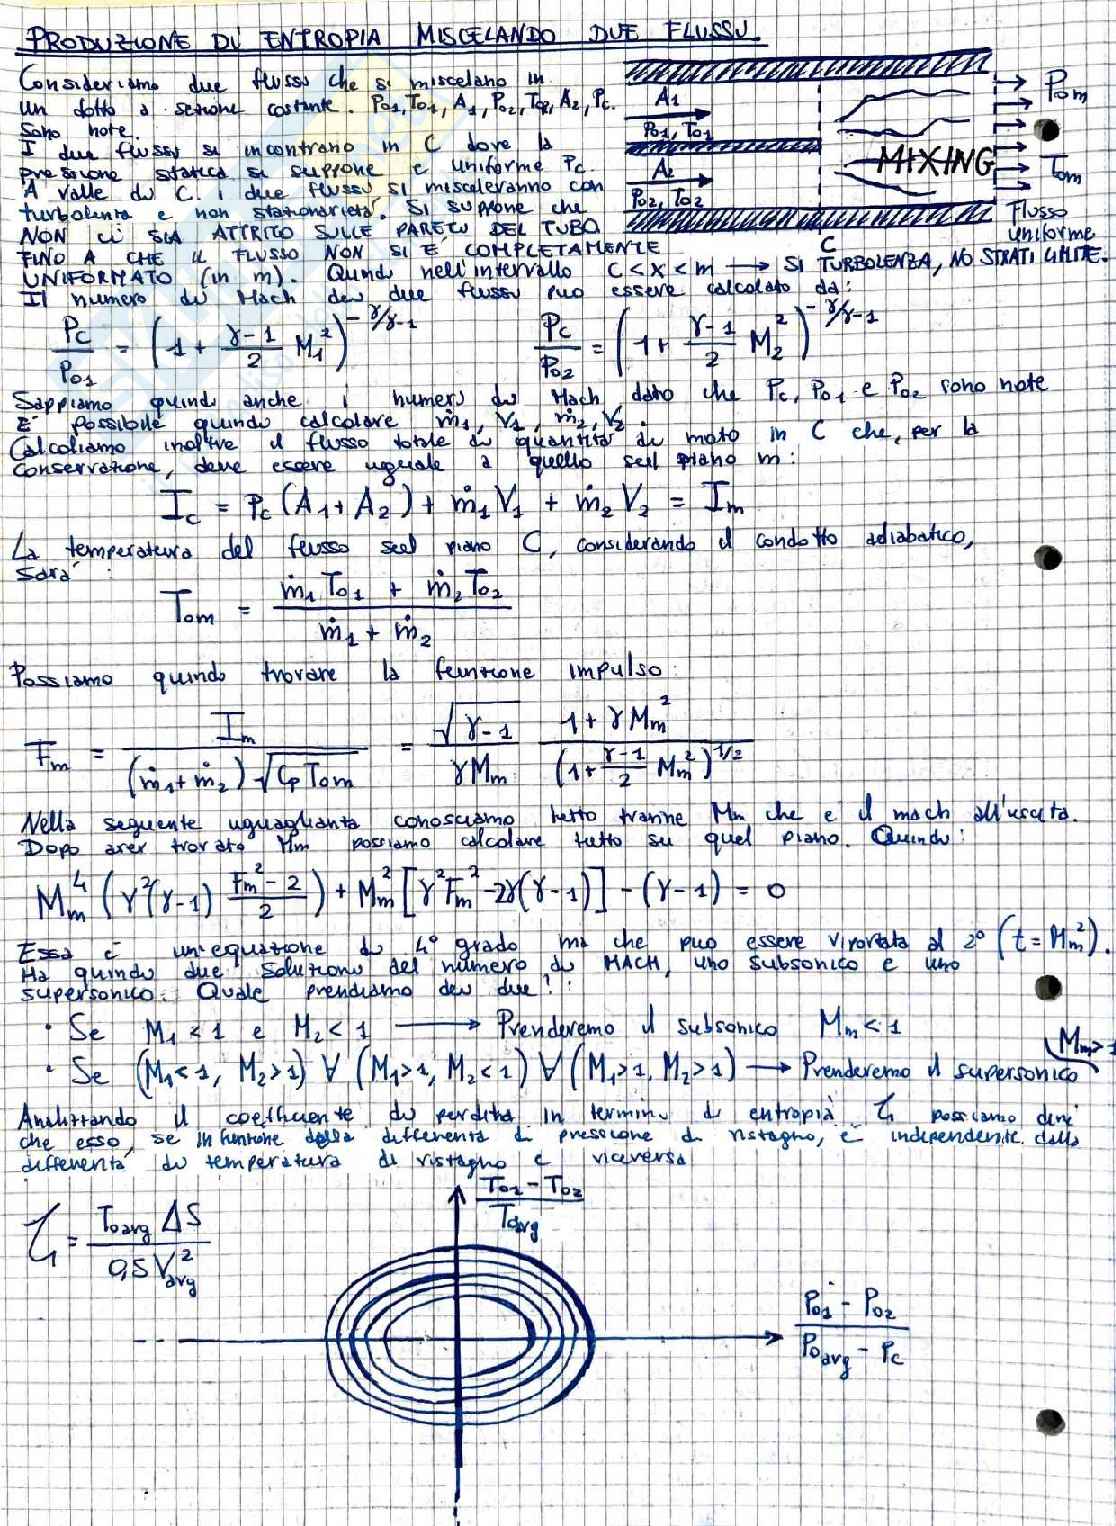 PRODUZIONE DI ENTROPIA MISCELANDO DUE FLUSSI
Consideriamo due flussi che si miscelano in
un dotto a sezione costante. Po1, To1, A1, Po2, To2, A2, Pc.
Sono note.
I due flussi si incontrano in C dove la
pressione statica si suppone e uniforme Pc.
A valle di C. i due flussi si misceleranno con
turbolenza e non stazionarietà. Si suppone che
NON ci SIA ATTRITO SULLE PARETI DEL TUBO
FINO A CHE IL FLUSSO NON SI E' COMPLETAMENTE
UNIFORMATO (in m). Quindi nell'intervallo C < x < m → SI TURBOLENZA, NO STRATI LIMITE.
A1
Po1, To1
A2
Po2, To2
MIXING
Pom
Tom
Flusso
uniforme
C
Il numero di Mach dei due flussi può essere calcolato da:
Pc/Po1 = (1 + γ-1/2 M1²)^-γ/γ-1    Pc/Po2 = (1 + γ-1/2 M2²)^-γ/γ-1
Sappiamo quindi anche i numeri di Mach dato che Pc, Po1 e Po2 sono note
E' possibile quindi calcolare ṁ1, V1, ṁ2, V2.
Calcoliamo inoltre il flusso totale di quantità di moto in C che, per la
conservazione, deve essere uguale a quello sul piano m:
Ic = Pc (A1 + A2) + ṁ1 V1 + ṁ2 V2 = Im
La temperatura del flusso sul piano C, considerando il condotto adiabatico,
sarà:
Tom = ṁ1 To1 + ṁ2 To2 / ṁ1 + ṁ2
Possiamo quindi trovare la funzione impulso:
Fm = Im / (ṁ1 + ṁ2) √Cp Tom = √γ-1 / γMm · 1 + γMm² / (1 + γ-1/2 Mm²)^1/2
Nella seguente uguaglianza conosciamo tutto tranne Mm che e' il mach all'uscita.
Dopo aver trovato Mm possiamo calcolare tutto su quel piano. Quindi:
Mm⁴ (γ²(γ-1) Fm² - 2 / 2) + Mm² [γ²Fm² - 2γ(γ-1)] - (γ-1) = 0
Essa è un'equazione di 4° grado ma che può essere riportata al 2° (t = Mm²).
Ha quindi due soluzioni del numero di MACH, uno subsonico e uno
supersonico. Quale prendiamo dei due?:
• Se M1 < 1 e M2 < 1 → Prenderemo il subsonico Mm < 1
• Se (M1 < 1, M2 > 1) ∀ (M1 > 1, M2 < 1) ∀ (M1 > 1, M2 > 1) → Prenderemo il supersonico Mm > 1
Analizzando il coefficiente di perdita in termini di entropia ζ possiamo dire
che esso, se in funzione della differenza di pressione di ristagno, è indipendente dalla
differenza di temperatura di ristagno e viceversa
ζ = Toavg ΔS / 0,5 Vavg²
To2 - To2 / Toavg
Po1 - Po2 / Poavg - Pc